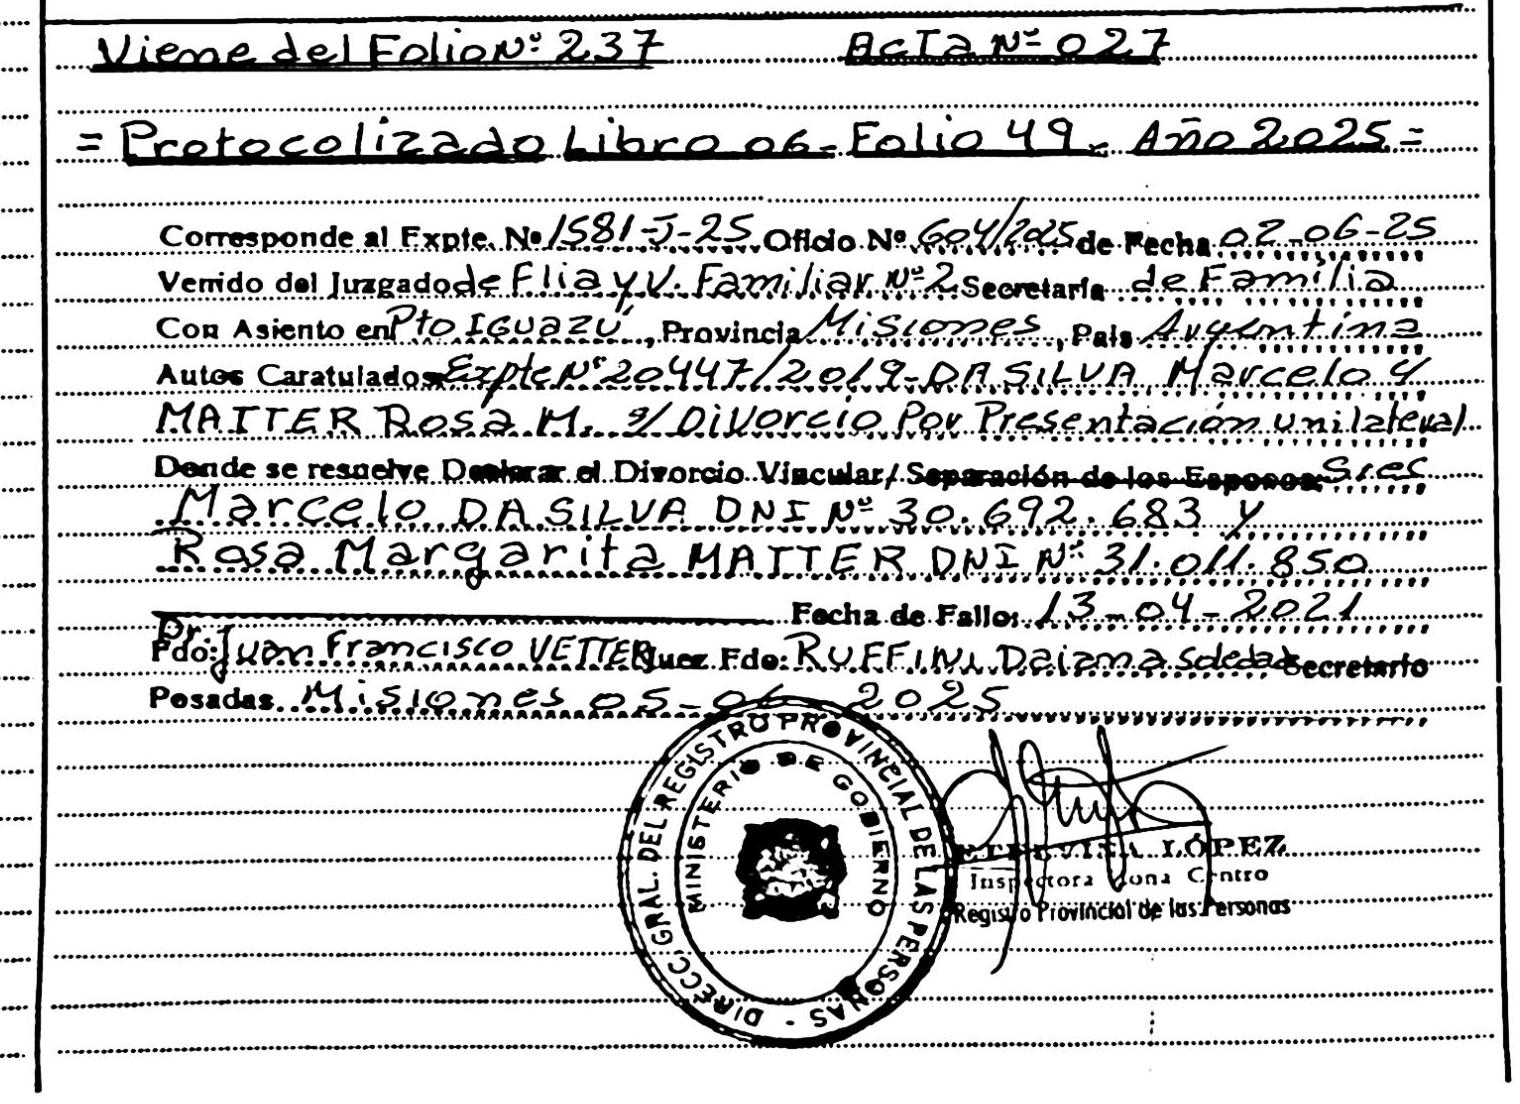 Viene del Folio Nº 237 Acta Nº 027
= Protocolizado Libro 06- Folio 49- Año 2025 =
Corresponde al Expte. Nº 1581-J-25 Oficio Nº 604/2025 de Fecha 02-06-25
Venido del Juzgado de Flia y V. Familiar Nº 2 Secretaría de Família
Con Asiento en Pto IGUAZÚ, Provincia Misiones, País Argentina
Autos Caratulados Expte Nº 20447/2019- DA SILVA Marcelo y
MATTER Rosa M. s/ Divorcio Por Presentación unilateral
Donde se resuelve Declarar el Divorcio Vincular/ Separación de los Esposos: Sres
Marcelo DA SILVA DNI Nº 30.692.683 y
Rosa Margarita MATTER DNI Nº 31.011.850
Fecha de Fallo: 13-04-2021
Fdo: Dr. Juan Francisco VETTER Juez Fdo: RUFFINI Daiana Soledad Secretario
Posadas Misiones 05-06-2025
DIRECC. GRAL. DEL REGISTRO PROVINCIAL DE LAS PERSONAS -
MINISTERIO DE GOBIERNO
LÓPEZ
Inspectora Zona Centro
Registro Provincial de las Personas